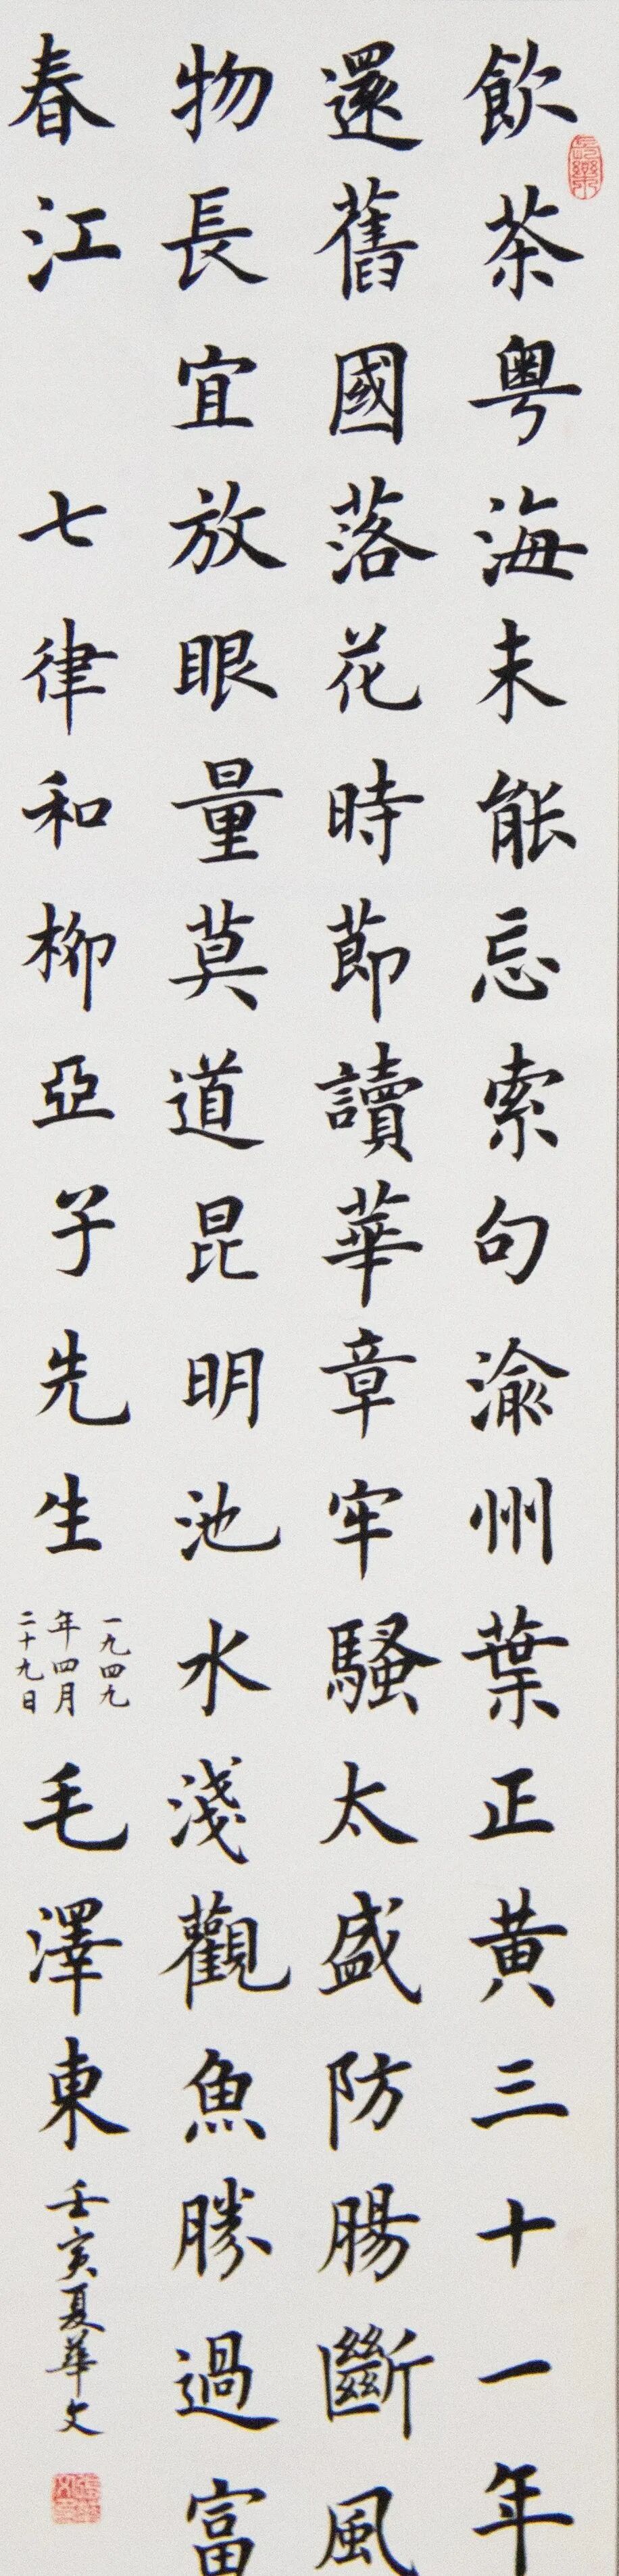 飲茶粵海未能忘索句渝州葉正黃三十一年
還舊國落花時節讀華章牢騷太盛防腸斷風
物長宜放眼量莫道昆明池水淺觀魚勝過富
春江 七律和柳亞子先生
一九四九
年四月
二十九日
毛澤東
壬寅夏華文
長樂